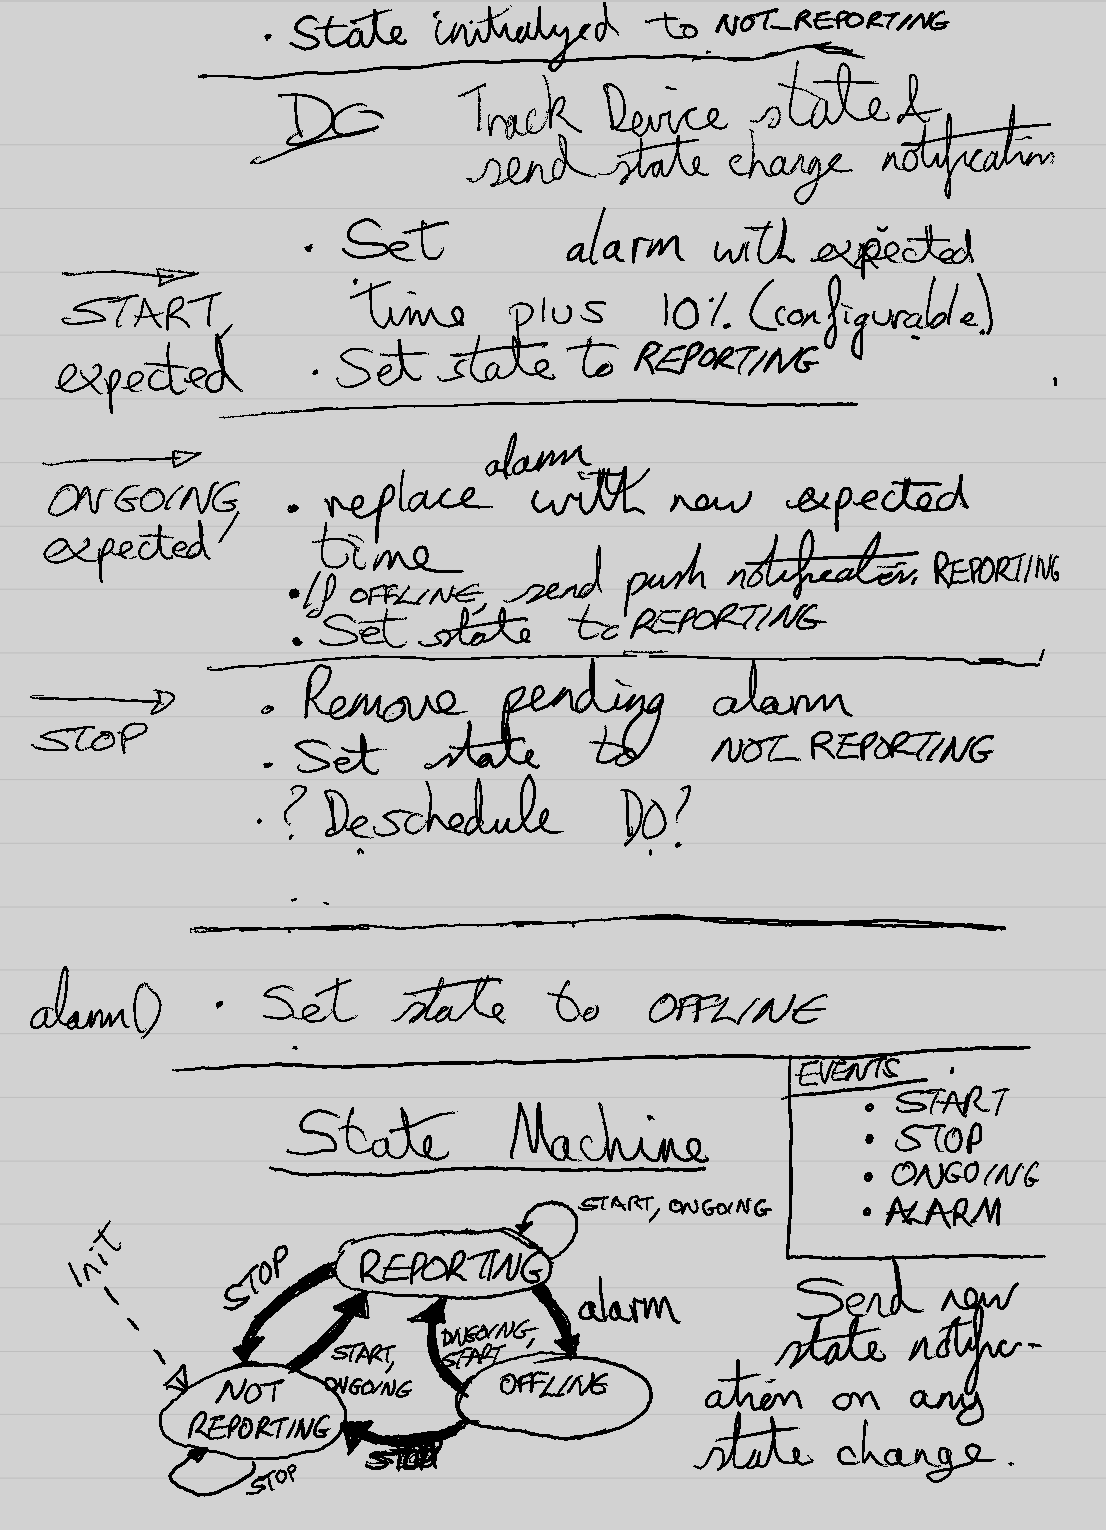 · State initialyed to NOT_REPORTING
DO Track Device state &
send state change notification
· Set alarm with expected
START, time plus 10% (configurable)
expected · Set state to REPORTING
alarm
ONGOING, · replace with new expected
expected time
· If OFFLINE, send push notification REPORTING
· Set state to REPORTING
STOP · Remove pending alarm
· Set state to NOT_REPORTING
· ? Deschedule DO?
alarm() · Set state to OFFLINE
EVENTS
· START
· STOP
· ONGOING
· ALARM
State Machine
START, ONGOING
Init
STOP
REPORTING
alarm
START,
ONGOING
ONGOING,
START
NOT
REPORTING
OFFLING
STOP
STOP
Send new
state notific-
ation on any
state change.